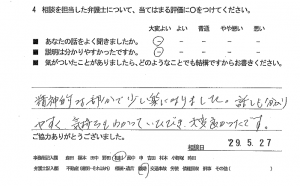 4 相談を担当した弁護士について、当てはまる評価に○をつけてください。
大変よい よい 普通 やや悪い 悪い
■ あなたの話をよく聞きましたか。
■ 説明は分かりやすかったですか。
■ 気がついたことがありましたら、どのようなことでも結構ですからお書きください。
精神的な部分で少し楽になりました。話しも分かり
やすく、気持ちもわかっていただき、大変良かったです。
ご協力ありがとうございました。
相談日 29.5.27